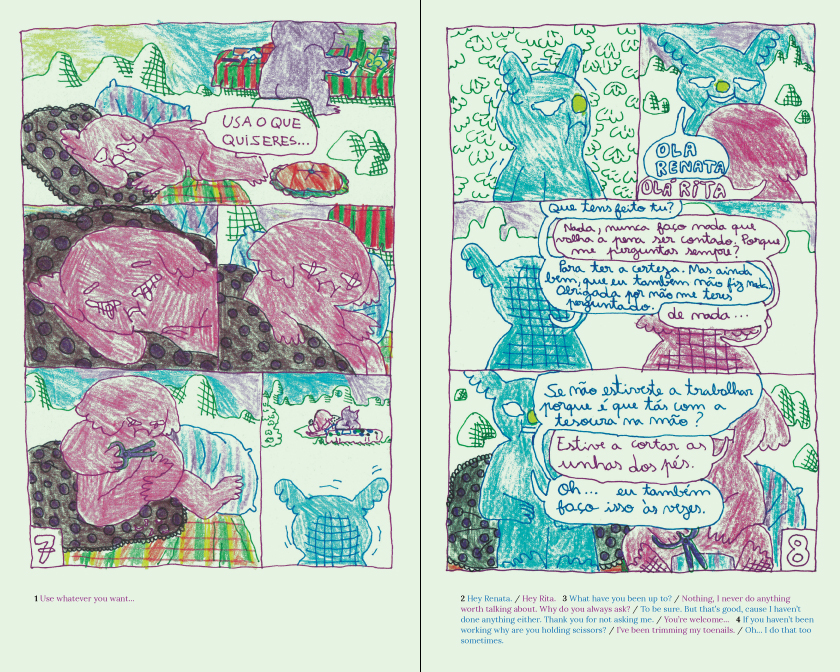 USA O QUE
QUISERES...
7
1 Use whatever you want...
OLÁ
RENATA
OLÁ RITA
Que tens feito tu?
Nada, nunca faço nada que
valha a pena ser contado. Porque
me perguntas sempre?
Para ter a certeza. Mas ainda
bem, que eu também não fiz nada.
Obrigada por não me teres
perguntado.
de nada...
Se não estivete a trabalhar
porque é que tás com a
tesoura na mão?
Estive a cortar as
unhas dos pés.
Oh... eu também
faço isso às vezes.
8
2 Hey Renata. / Hey Rita. 3 What have you been up to? / Nothing, I never do anything
worth talking about. Why do you always ask? / To be sure. But that's good, cause I haven't
done anything either. Thank you for not asking me. / You're welcome... 4 If you haven't been
working why are you holding scissors? / I've been trimming my toenails. / Oh... I do that too
sometimes.